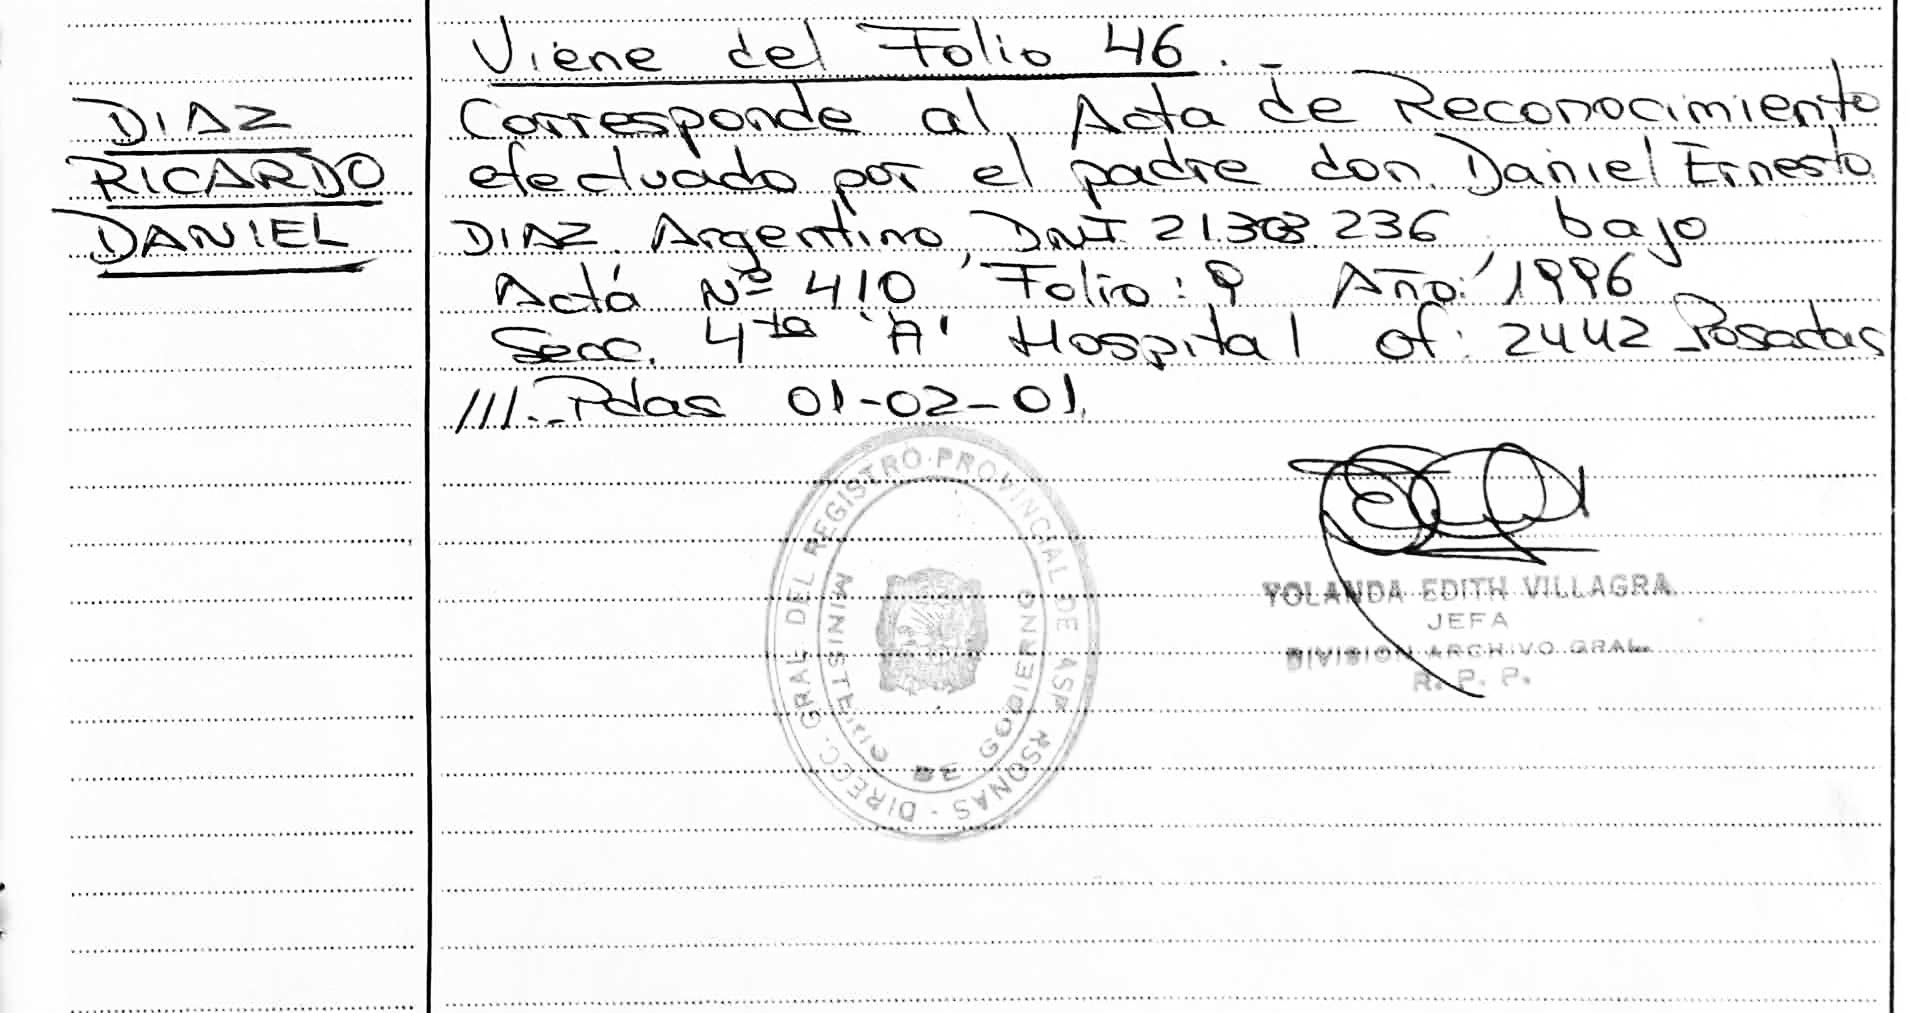 Viene del Folio 46.-
DIAZ
RICARDO
DANIEL
Corresponde al Acta de Reconocimiento
efectuado por el padre don Daniel Ernesto
DIAZ. Argentino DNI 21.303.236 bajo
Acta Nº 410 Folio: 9 Año: 1996
Secc. 4ta "A" Hospital of: 2442 Posadas
///.- Pdas 01-02-01.
DIRECC. GRAL. DEL REGISTRO PROVINCIAL DE LAS PERSONAS -
MINISTERIO DE GOBIERNO
YOLANDA EDITH VILLAGRA
JEFA
DIVISION ARCHIVO GRAL.
R. P. P.